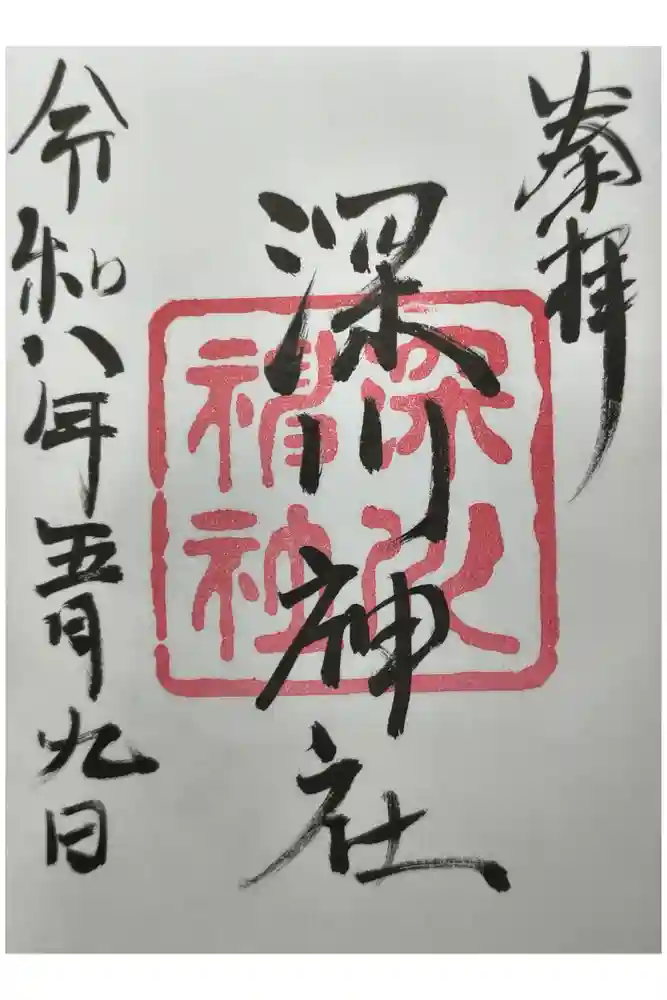 奉拝
深川神社
深川神社
令和八年五月九日